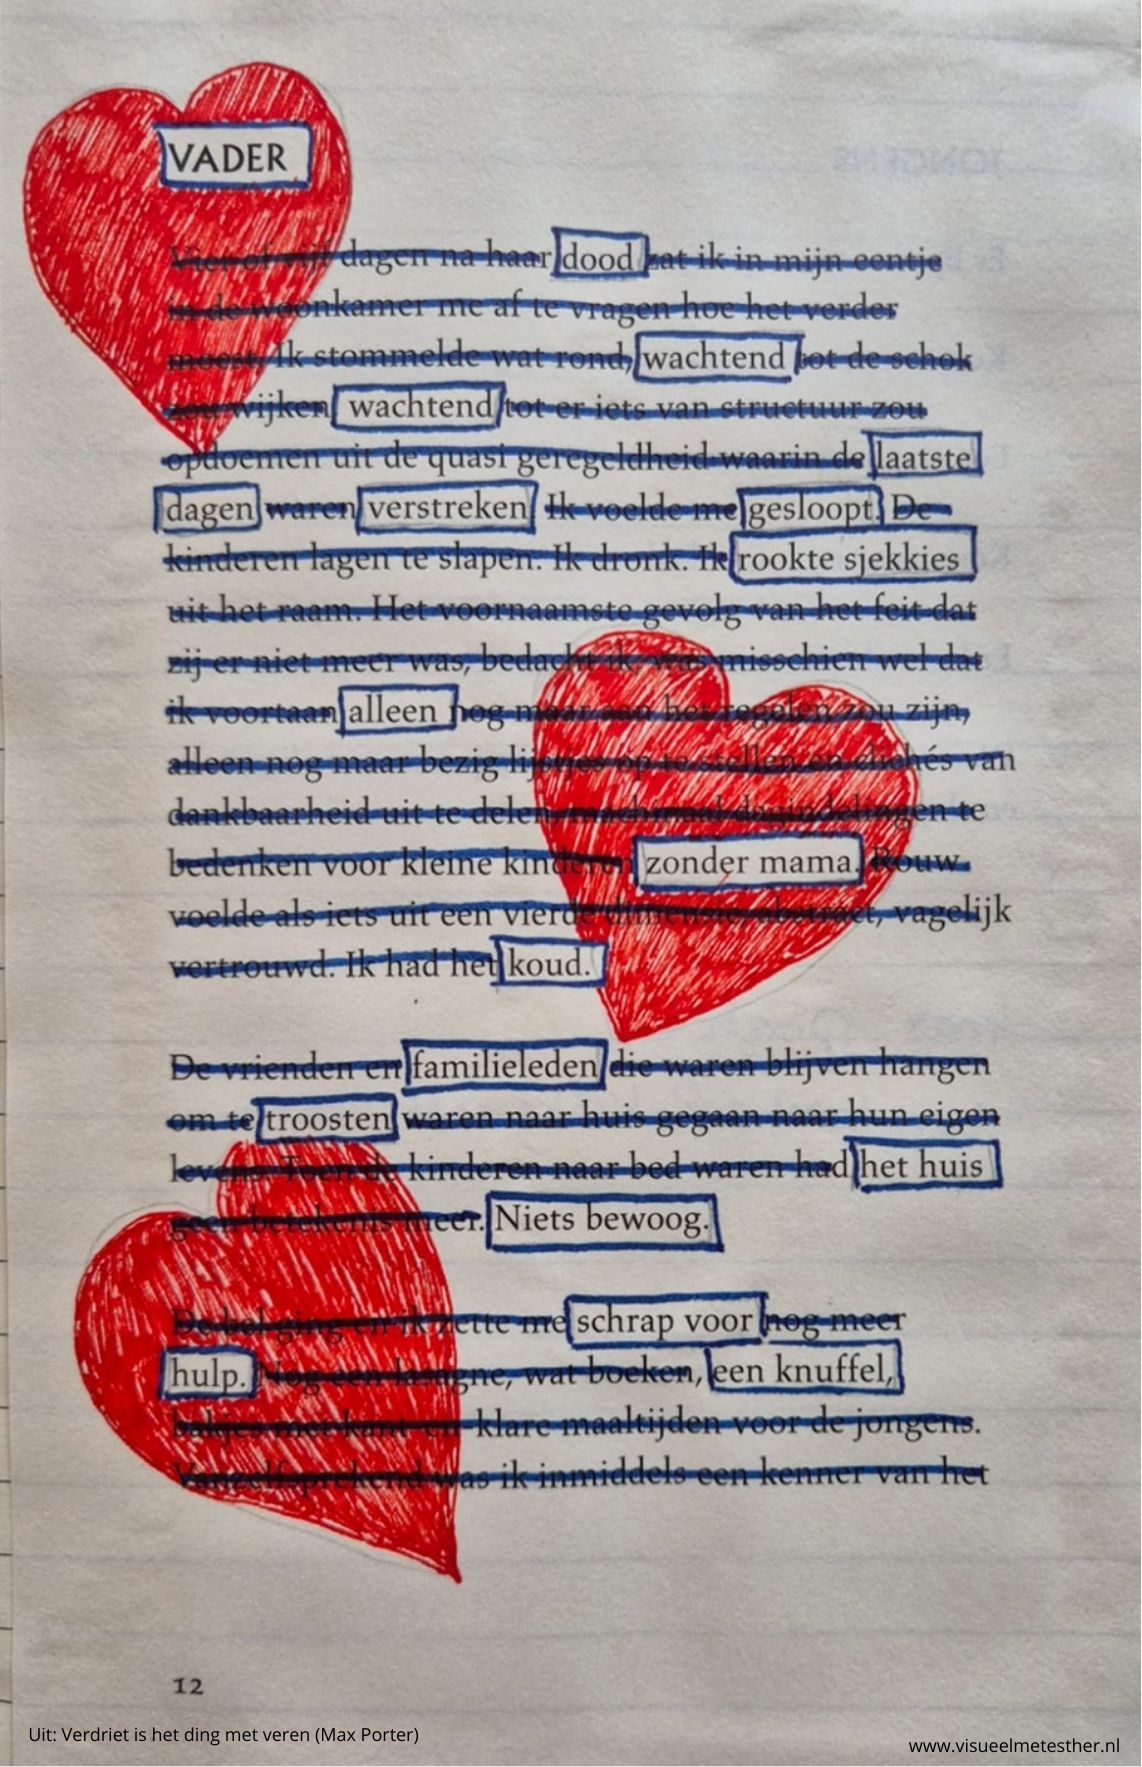 VADER
Vier of vijf dagen na haar dood zat ik in mijn eentje
in de woonkamer me af te vragen hoe het verder
moest. Ik stommelde wat rond, wachtend tot de schok
zou wijken wachtend tot er iets van structuur zou
opdoemen uit de quasi geregeldheid waarin de laatste
dagen waren verstreken Ik voelde me gesloopt. De
kinderen lagen te slapen. Ik dronk. Ik rookte sjekkies
uit het raam. Het voornaamste gevolg van het feit dat
zij er niet meer was, bedacht ik, was misschien wel dat
ik voortaan alleen nog maar aan het regelen zou zijn,
alleen nog maar bezig lijstjes op te stellen en clichés van
dankbaarheid uit te delen, machinaal dagindelingen te
bedenken voor kleine kinderen zonder mama. Rouw
voelde als iets uit een vierde dimensie, abstract, vagelijk
vertrouwd. Ik had het koud.
De vrienden en familieleden die waren blijven hangen
om te troosten waren naar huis gegaan naar hun eigen
levens. Toen de kinderen naar bed waren had het huis
geen betekenis meer. Niets bewoog.
De bel ging en ik zette me schrap voor nog meer
hulp. Nog een lasagne, wat boeken, een knuffel,
bakjes met kant-en-klare maaltijden voor de jongens.
Vanzelfsprekend was ik inmiddels een kenner van het
12
Uit: Verdriet is het ding met veren (Max Porter)
www.visueelmetesther.nl